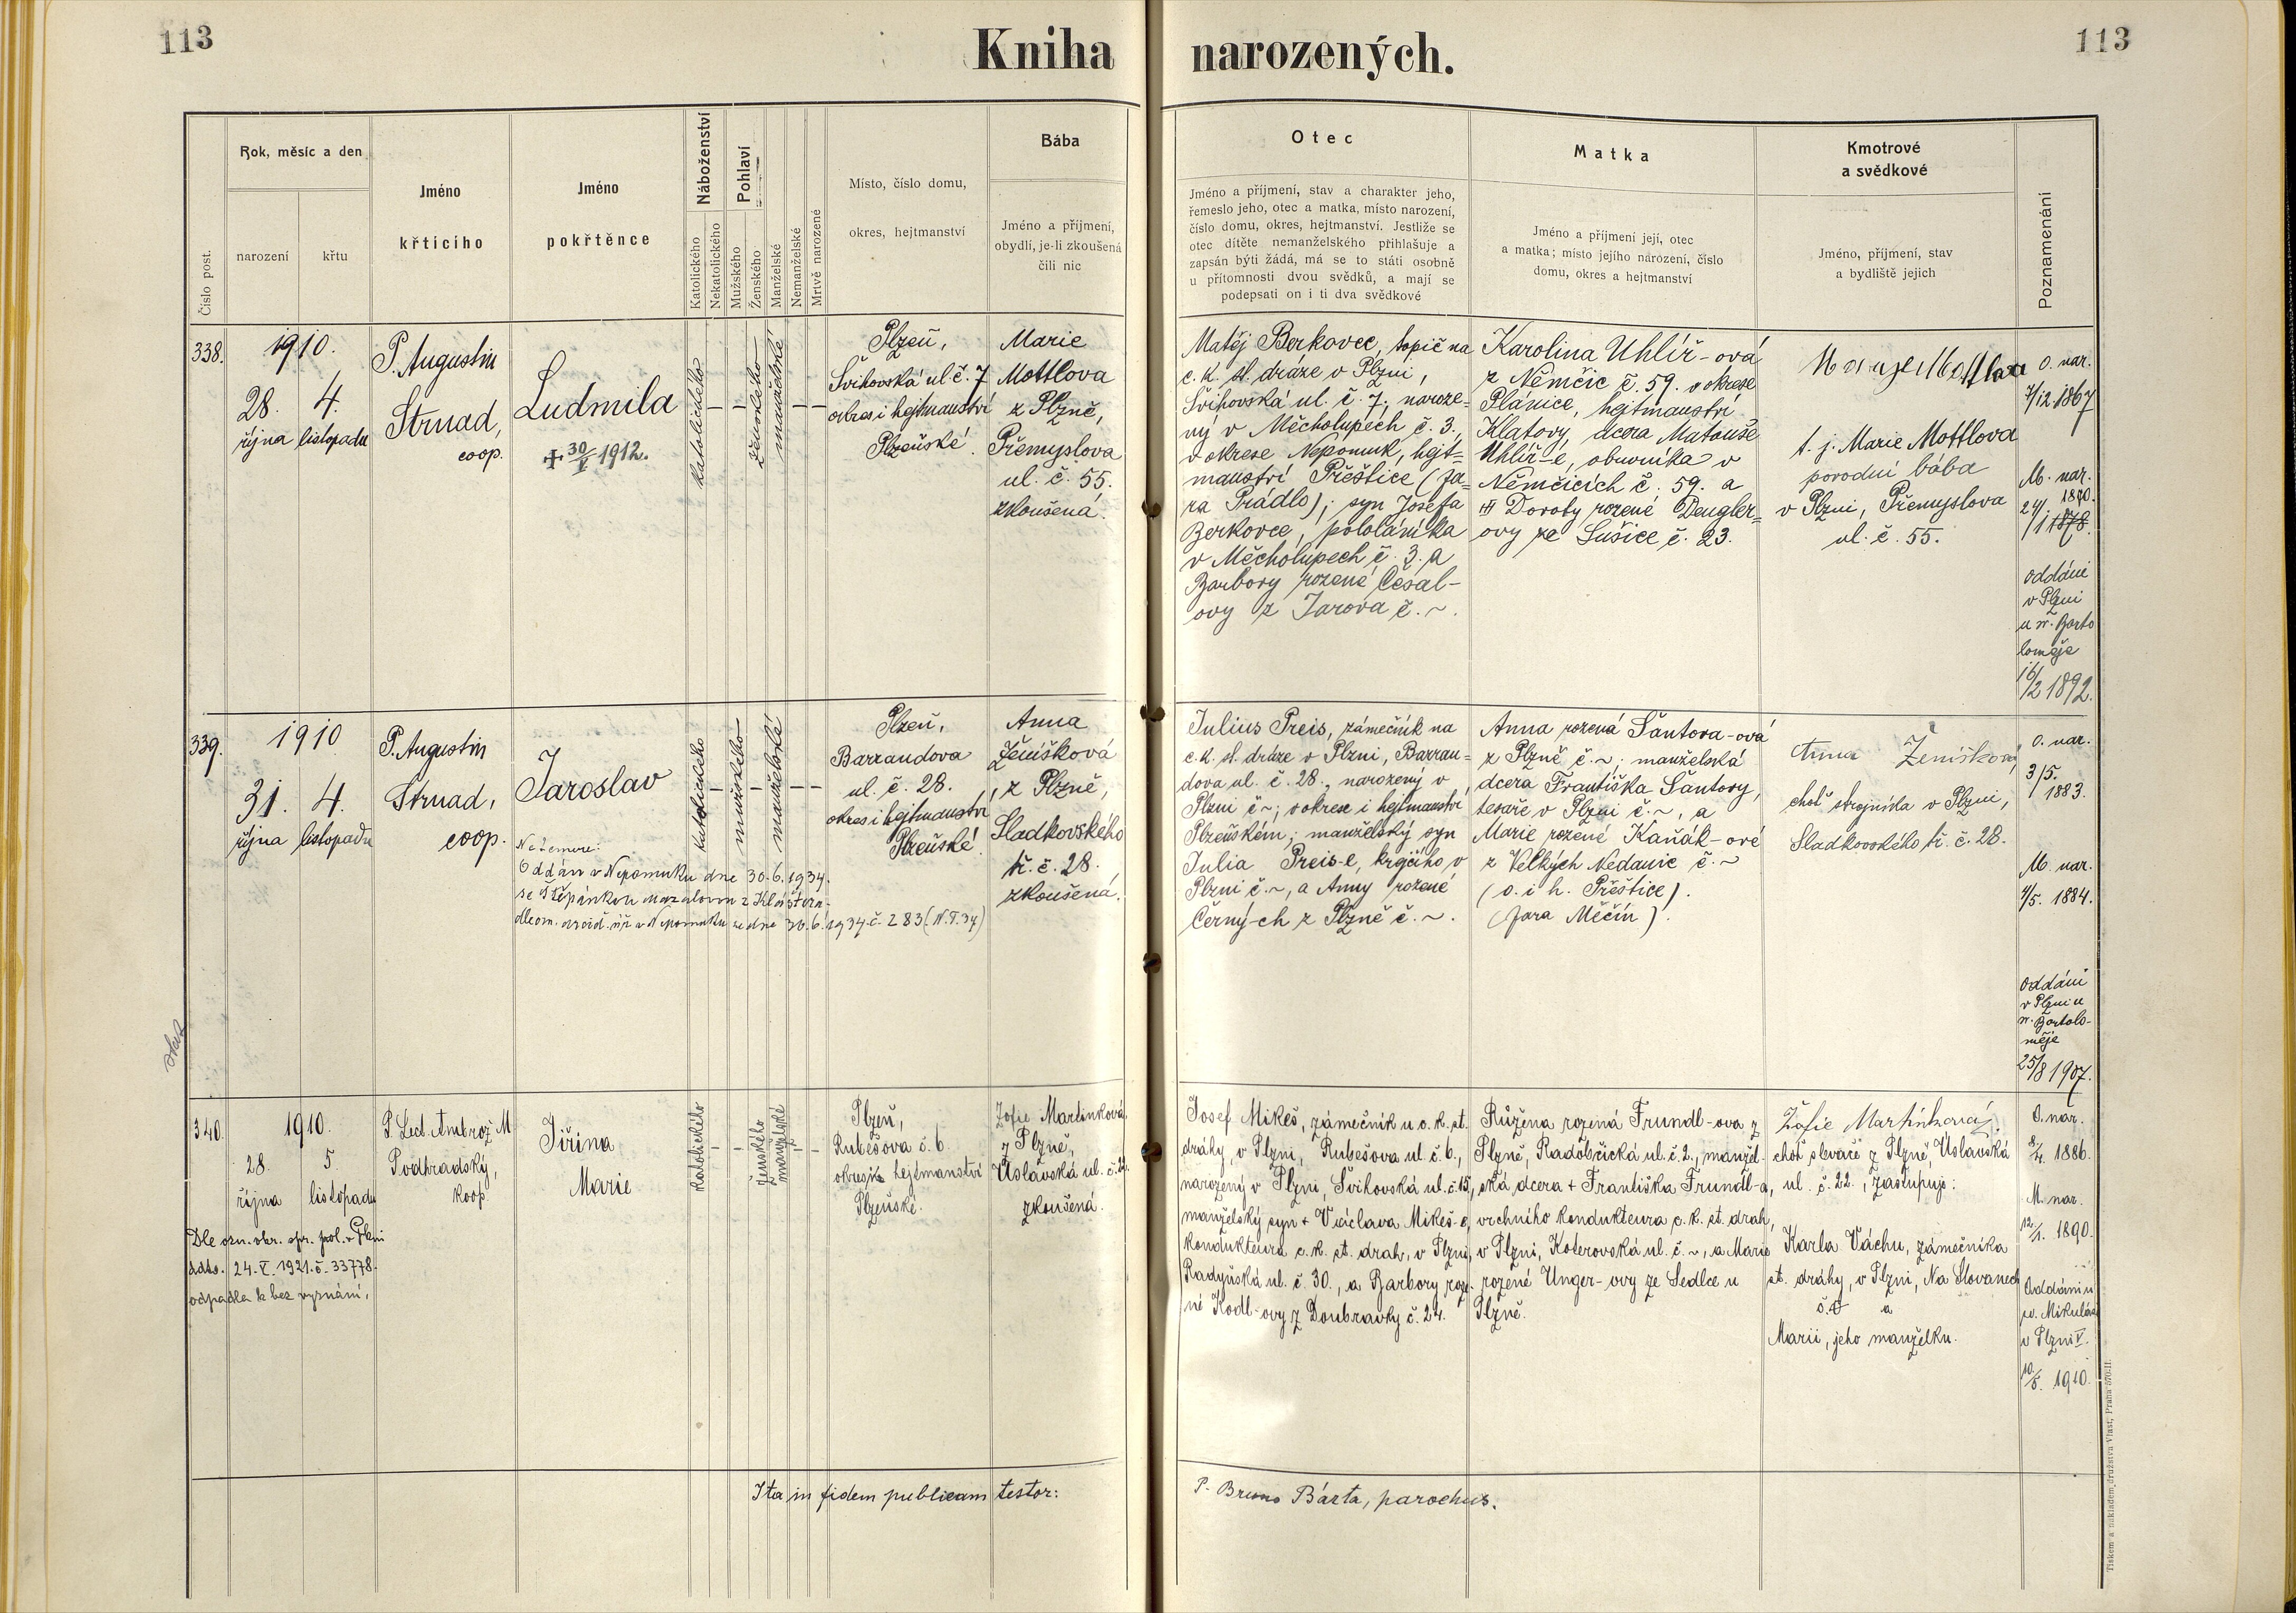 113
Kniha narozených.
113
Číslo post.
Rok, měsíc a den
narození
křtu
Jméno
křtícího
Jméno
pokřtěnce
Náboženství
Katolického
Nekatolického
Pohlaví
Mužského
Ženského
Manželské
Nemanželské
Mrtvě narozené
Místo, číslo domu,
okres, hejtmanství
Bába
Jméno a příjmení,
obydlí, je-li zkoušená
čili nic
Otec
Jméno a příjmení, stav a charakter jeho,
řemeslo jeho, otec a matka, místo narození,
číslo domu, okres, hejtmanství. Jestliže se
otec dítěte nemanželského přihlašuje a
zapsán býti žádá, má se to státi osobně
u přítomnosti dvou svědků, a mají se
podepsati on i ti dva svědkové
Matka
Jméno a příjmení její, otec
a matka; místo jejího narození, číslo
domu, okres a hejtmanství
Kmotrové
a svědkové
Jméno, příjmení, stav
a bydliště jejich
Poznamenání
338.
1910.
28.
října
4.
listopadu
P. Augustin
Strnad,
coop.
Ludmila
+ 30/V 1912.
katolického
ženského
manželské
Plzeň,
Švihovská ul. č. 7
okres i hejtmanství
Plzeňské.
Marie
Mottlova
z Plzně,
Přemyslova
ul. č. 55.
zkoušená.
Matěj Berkovec, topič na
c. k. st. dráze v Plzni,
Švihovská ul. č. 7., naroze=
ný v Měcholupech č. 3.,
v okrese Nepomuk, hejt=
manství Přeštice (fa=
ra Prádlo); syn Josefa
Berkovce, pololáníka
v Měcholupech č. 3. a
Barbory rozené Česal-
ovy z Jarova č. ~.
Karolina Uhlíř-ová
z Němčic č. 59. v okrese
Plánice, hejtmanství
Klatovy, dcera Matouše
Uhlíř-e, obuvníka v
Němčicích č. 59. a
Doroty rozené Deugler=
ovy ze Sušice č. 23.
Marye Mottlova
t. j. Marie Mottlova
porodní bába
v Plzni, Přemyslova
ul. č. 55.
O. nar.
7/12 1867
M. nar.
1870.
24/1 1878.
oddáni
v Plzni
u sv. Barto
loměje
16/2 1892.
339.
1910
31.
října
4.
listopadu
P. Augustin
Strnad,
coop.
Jaroslav
katolického
mužského
manželské
Oddán v Nepomuku dne 30.6.1934.
se Štěpánkou
ze dne 30.6.1934 č. 283
Plzeň,
Barrandova
ul. č. 28.
okres i hejtmanství
Plzeňské.
Anna
Ženíšková
z Plzně,
Sladkovského
tř. č. 28.
zkoušená.
Julius Preis, zámečník na
c. k. st. dráze v Plzni, Barran=
dova ul. č. 28., narozený v
Plzni č ~; v okrese i hejtmanství
Plzeňském; manželský syn
Julia Preis-e, krejčího v
Plzni č. ~, a Anny rozené
Černý-ch z Plzně č. ~.
Anna rozená Šantora-ová
z Plzně č. ~; manželská
dcera Františka Šantory,
tesaře v Plzni č. ~, a
Marie rozené Kaňák-ové
z Velkých Nedanic č. ~
(o. i h. Přeštice).
(fara Měčín).
Anna Ženíšková,
choť strojníka v Plzni,
Sladkovského tř. č. 28.
O. nar.
3/5. 1883.
M. nar.
4/5. 1884.
Oddáni
v Plzni u
sv. Bartolo-
měje
25/8 1907.
340.
1910.
28.
října
5.
listopadu
P. Lect. Ambrož M
Podhradský,
koop.
Jiřina
Marie
katolického
ženského
manželské
Dle ozn. okr. spr. pol. v Plzni
ddto. 24. V. 1921. č. 33778.
odpadla k bez vyznání.
Plzeň,
Rubešova č. 6.
okres i hejtmanství
Plzeňské.
Žofie Martinková
z Plzně,
Úslavská ul. č. 22.
zkoušená.
Josef Mikeš, zámečník u c. k. st.
dráhy, v Plzni, Rubešova ul. č. 6.,
narozený v Plzni, Švihovská ul. č. 15,
manželský syn + Václava Mikeš-e,
kondukteura c. k. st. drah, v Plzni,
Radyňská ul. č. 30., a Barbory roze-
né Kodl-ovy z Doubravky č. 24.
Růžena rozená Frundl-ova z
Plzně, Radobčická ul. č. 2., manžel-
ská dcera + Františka Frundl-a,
vrchního kondukteura c. k. st. drah,
v Plzni, Koterovská ul. č. ~, a Marie
rozené Unger-ovy ze Sedlce u
Plzně.
Žofie Martínková,
choť slevače z Plzně, Úslavská
ul. č. 22., zastupuje:
Karla Váchu, zámečníka
st. dráhy, v Plzni, Na Slovanech
a
Marii, jeho manželku.
O. nar.
8/4. 1886.
M. nar.
12/1. 1890.
Oddáni u
sv. Mikuláše
v Plzni V.
10/8. 1910.
Ita in fidem publicam testor:
P. Bruno Bárta, parochus.
Tiskem a nákladem družstva Vlast, Praha-570-II.